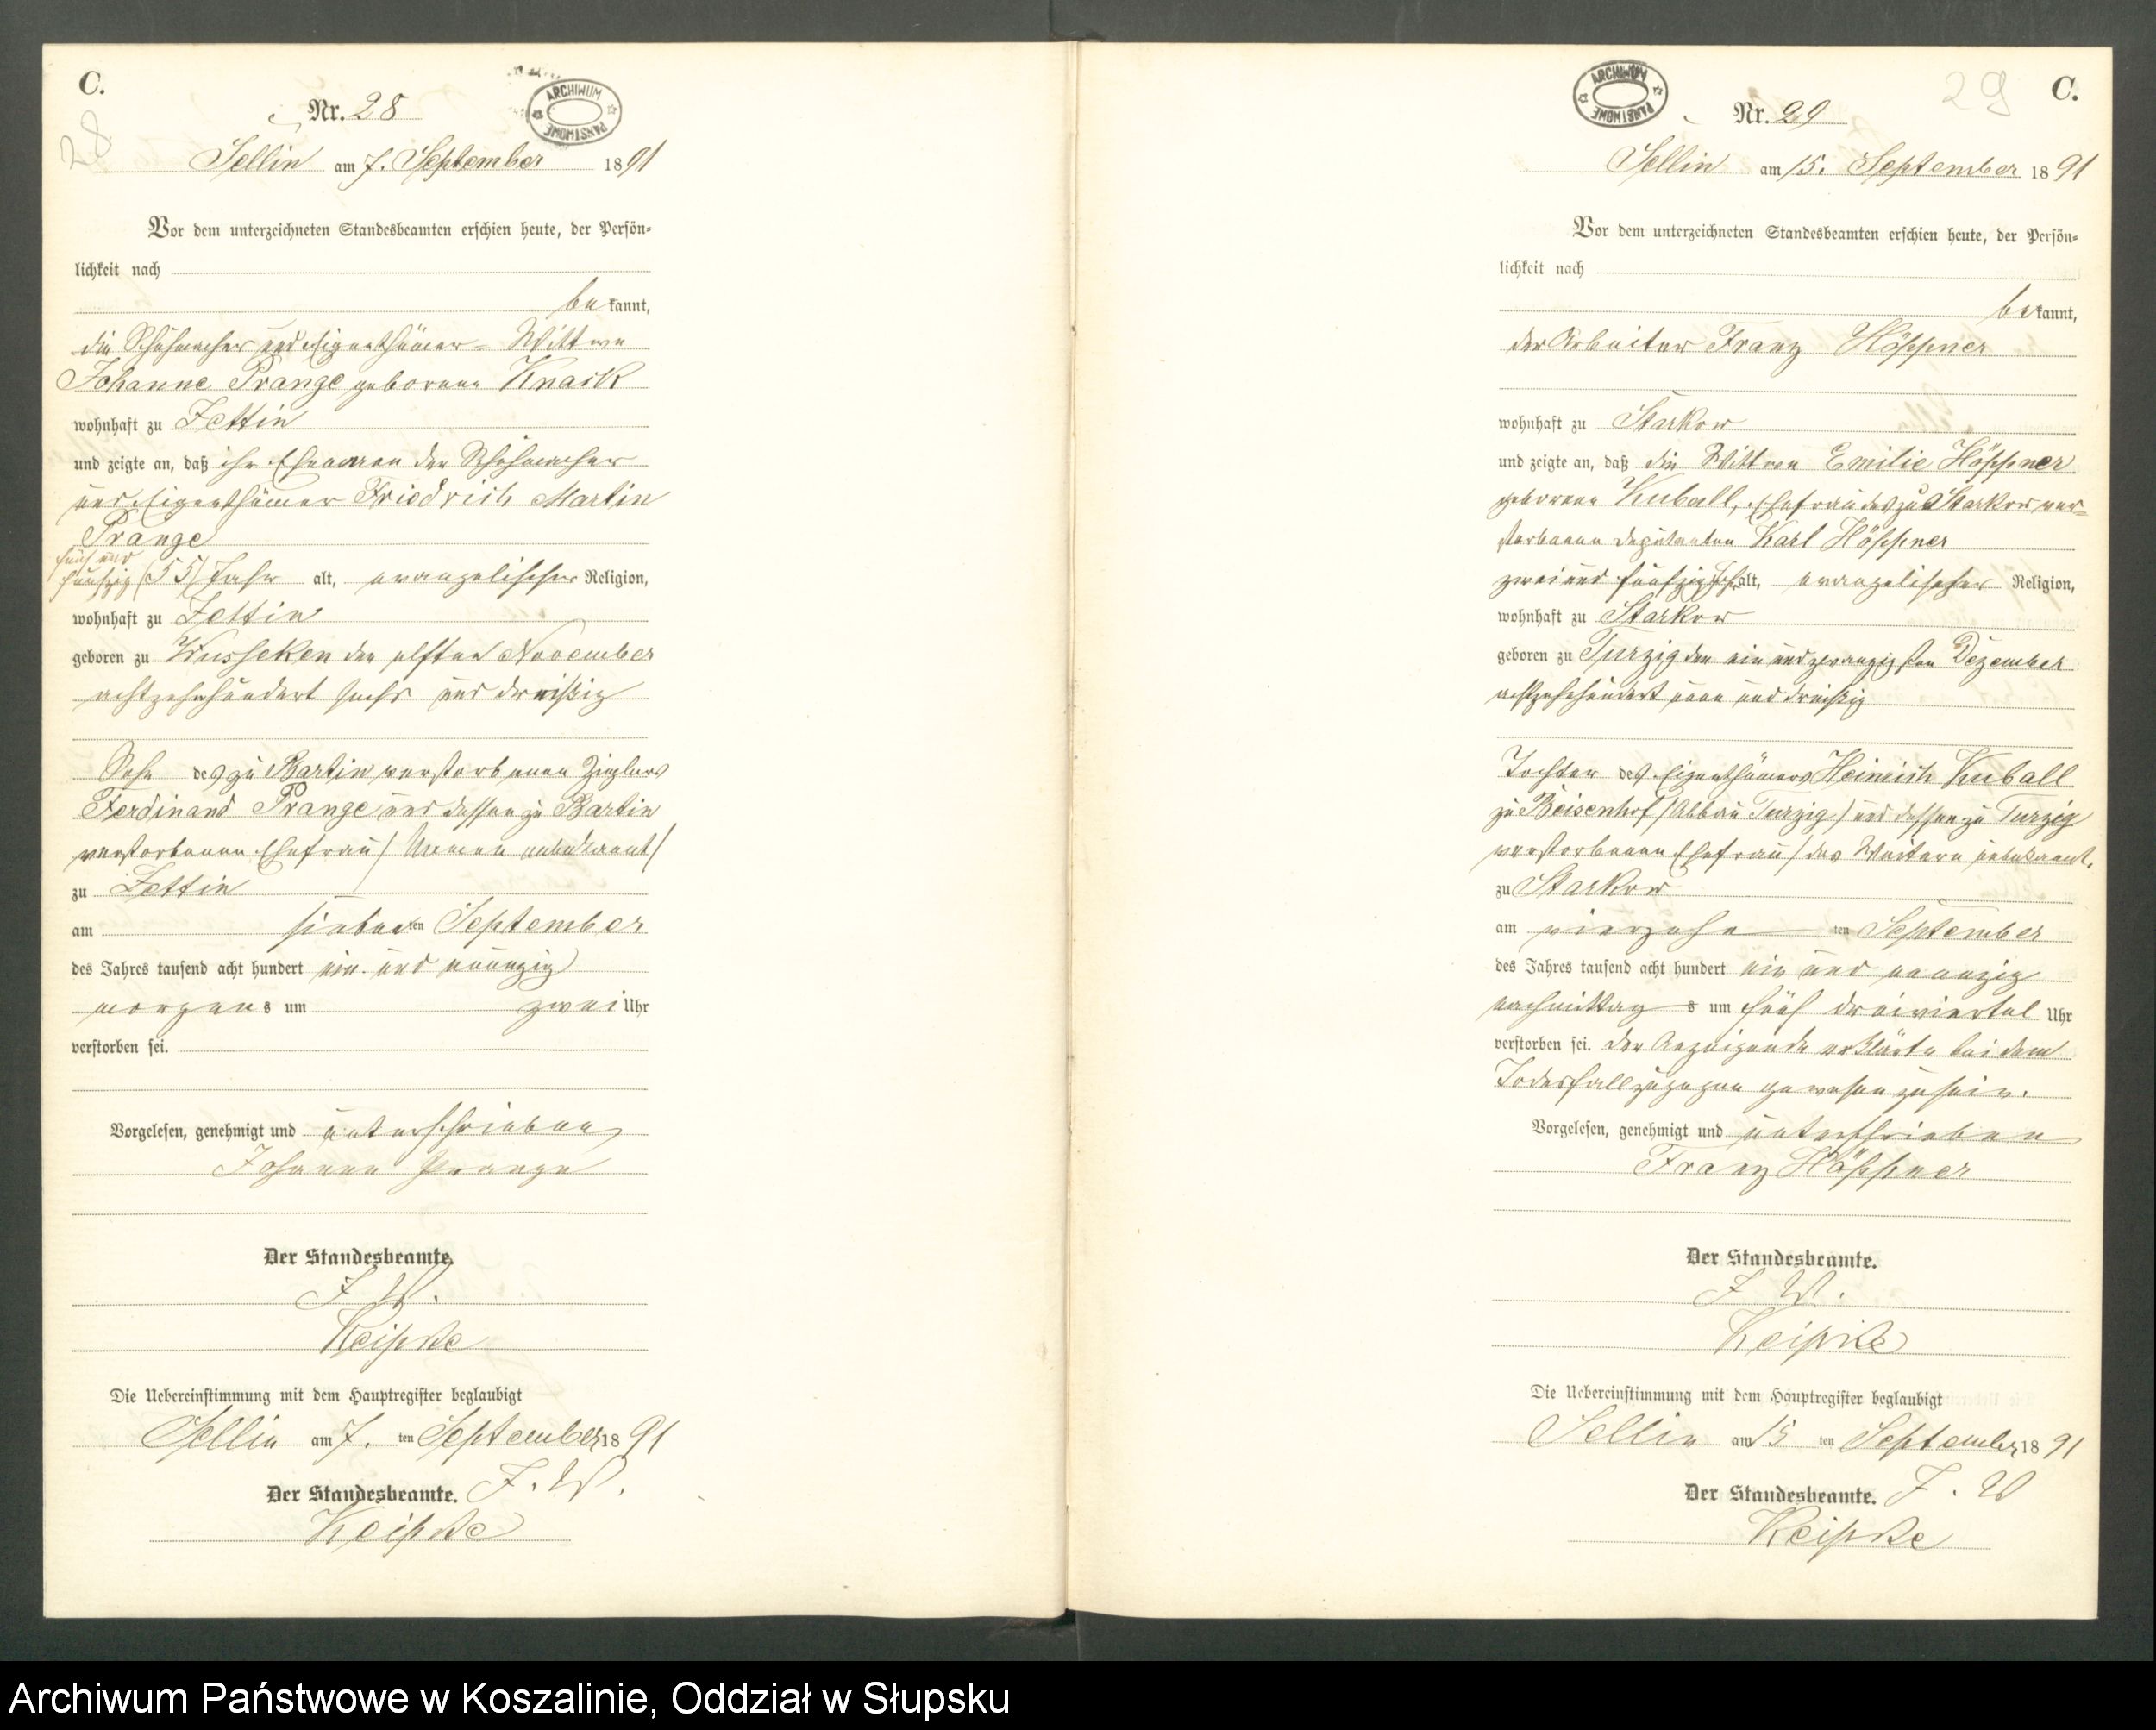 C.
28
Nr. 28
ARCHIWUM PAŃSTWOWE
Sellin am 7. September 1891
Vor dem unterzeichneten Standesbeamten erschien heute, der Persön-
lichkeit nach
bekannt,
die Schuhmacher und Eigenthümer-Wittwe
Johanne Prange geborene Knack
wohnhaft zu Zettin
und zeigte an, daß ihr Ehemann der Schuhmacher
und Eigenthümer Friedrich Martin
Prange
fünf und
fünfzig (55) Jahr alt, evangelischer Religion,
wohnhaft zu Zettin
geboren zu Wusseken den elften November
achtzehnhundert sechs und dreißig
Sohn des zu Bartin verstorbenen Zieglers
Ferdinand Prange und dessen zu Bartin
verstorbenen Ehefrau / Namen unbekannt /
zu Zettin
am siebenten September
des Jahres tausend acht hundert ein und neunzig
morgens um zwei Uhr
verstorben sei.
Vorgelesen, genehmigt und unterschrieben
Johanne Prange
Der Standesbeamte.
J. W.
Keipke
Die Uebereinstimmung mit dem Hauptregister beglaubigt
Sellin am 7. ten September 1891
Der Standesbeamte. J. W.
Keipke
ARCHIWUM PAŃSTWOWE
29
C.
Nr. 29
Sellin am 15. September 1891
Vor dem unterzeichneten Standesbeamten erschien heute, der Persön-
lichkeit nach
bekannt,
der Arbeiter Franz Höppner
wohnhaft zu Starkow
und zeigte an, daß die Wittwe Emilie Höppner
geborene Kuball, Ehefrau des zu Starkow ver-
storbenen Deputanten Karl Höppner
zwei und fünfzig Jahr alt, evangelischer Religion,
wohnhaft zu Starkow
geboren zu Turzig den ein und zwanzigsten Dezember
achtzehnhundert neun und dreißig
Tochter des Eigenthümers Heinrich Kuball
zu Reisenhof / Abbau Turzig / und dessen zu Turzig
verstorbenen Ehefrau / des Weitern unbekannt.
zu Starkow
am vierzehnten September
des Jahres tausend acht hundert ein und neunzig
nachmittags um fünf dreiviertel Uhr
verstorben sei. Der Anzeigende erklärte bei dem
Todesfall zugegen gewesen zu sein.
Vorgelesen, genehmigt und unterschrieben
Franz Höppner
Der Standesbeamte.
J. W.
Keipke
Die Uebereinstimmung mit dem Hauptregister beglaubigt
Sellin am 15 ten September 1891
Der Standesbeamte. J. W
Keipke
Archiwum Państwowe w Koszalinie, Oddział w Słupsku